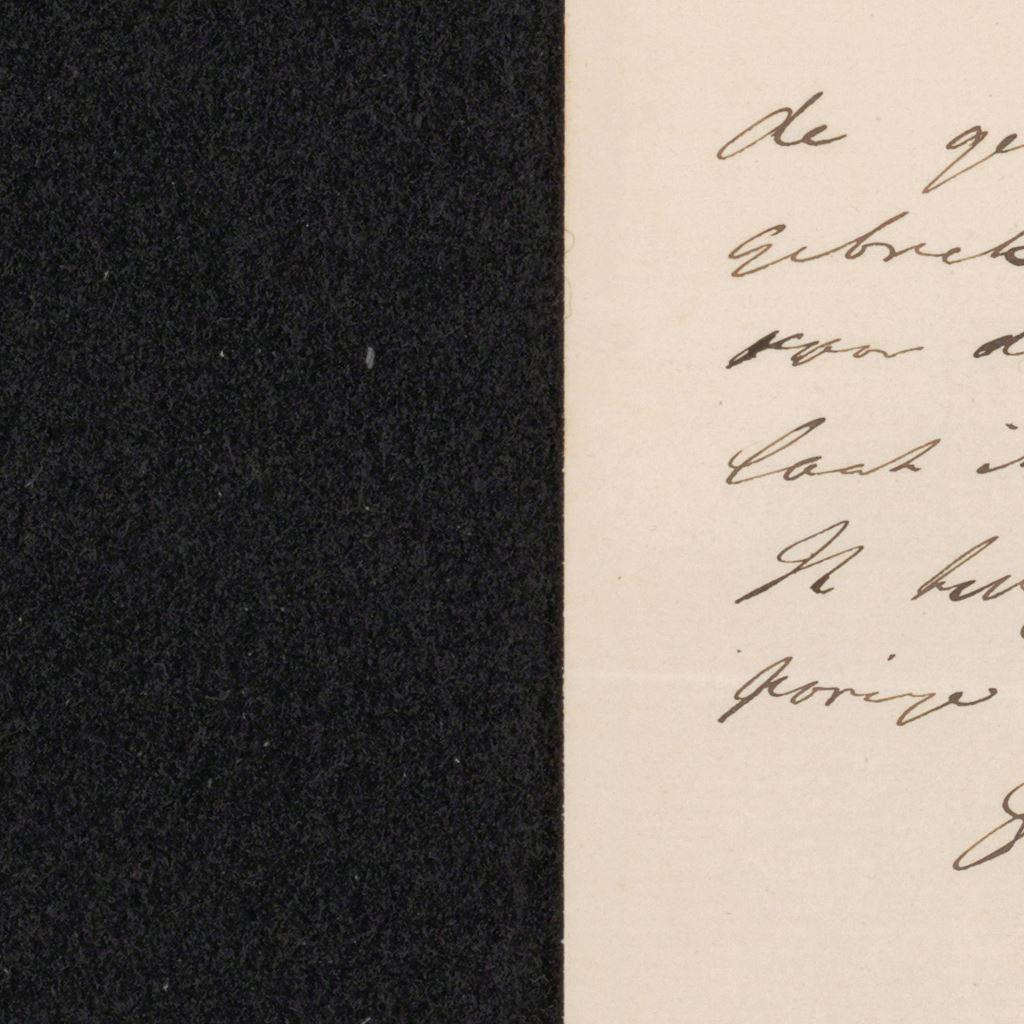 de ge
gebrek
voor d
laat i
Ik be
vorige